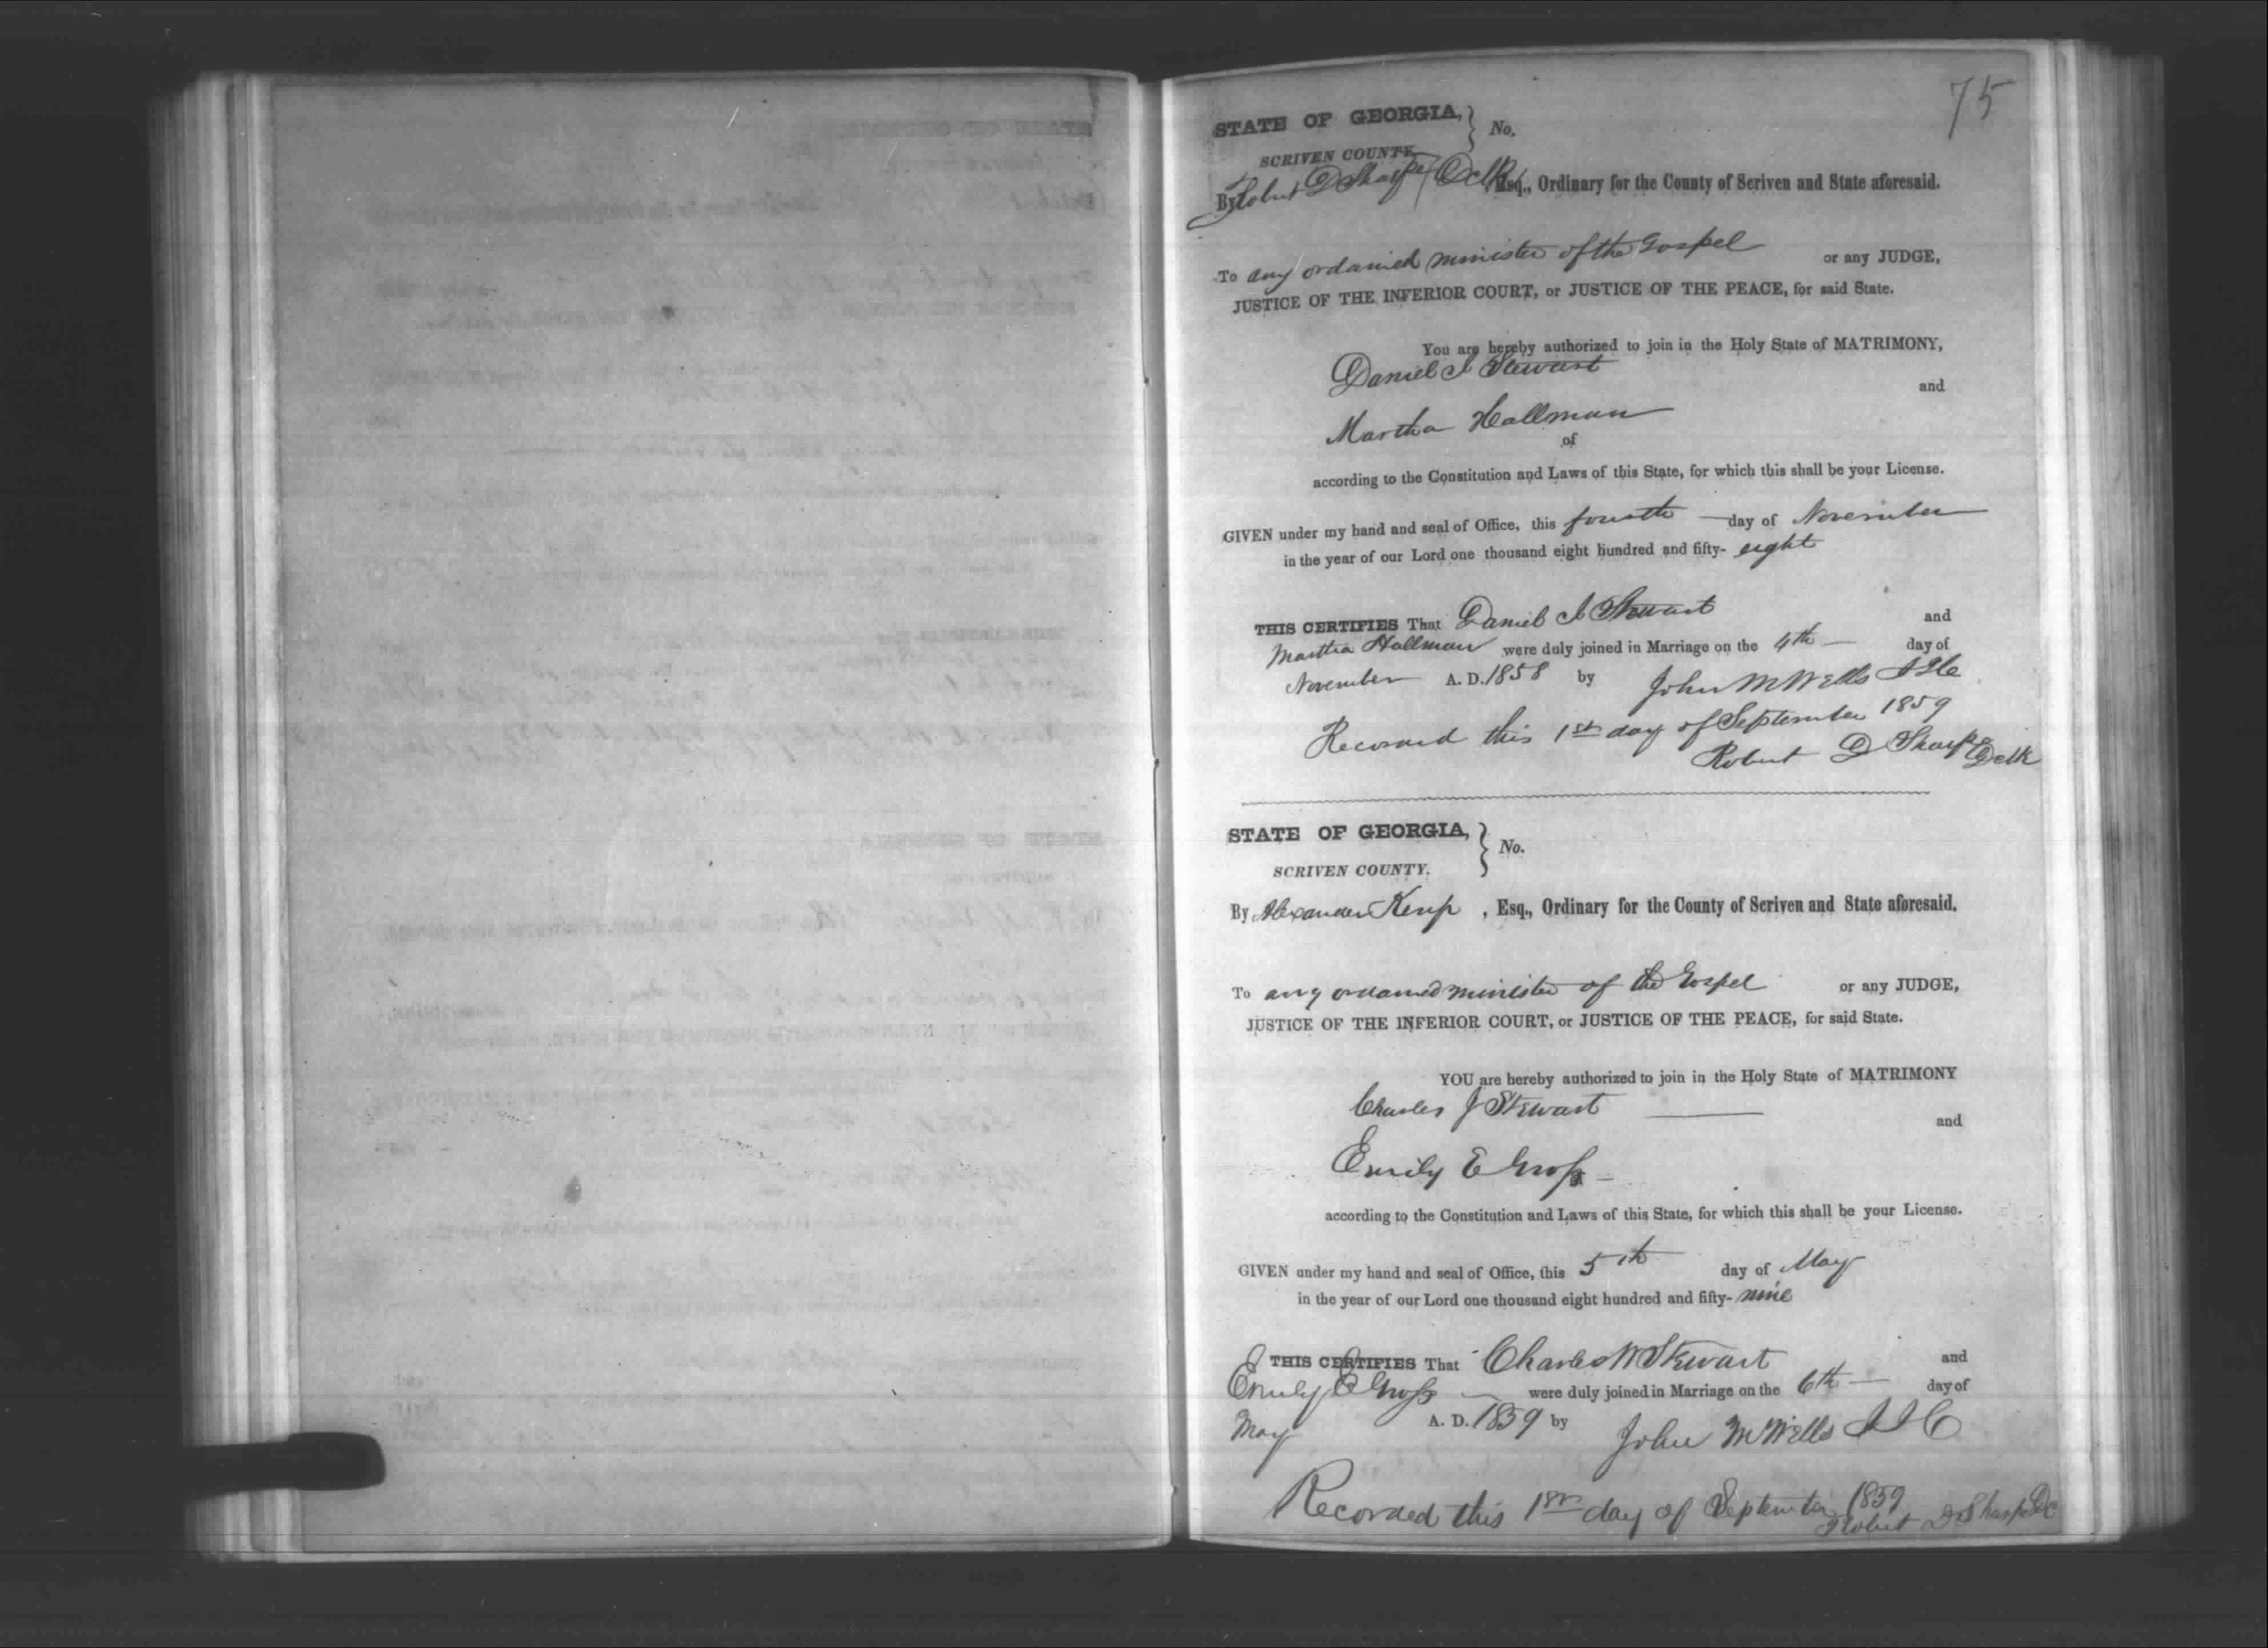 75
STATE OF GEORGIA, } No.
SCRIVEN COUNTY.
By Robert D Sharpe Dclk Esq., Ordinary for the County of Scriven and State aforesaid.
To any ordained minister of the Gospel or any JUDGE,
JUSTICE OF THE INFERIOR COURT, or JUSTICE OF THE PEACE, for said State.
You are hereby authorized to join in the Holy State of MATRIMONY,
Daniel J Stewart and
Martha Hallman
of
according to the Constitution and Laws of this State, for which this shall be your License.
GIVEN under my hand and seal of Office, this fourth day of November
in the year of our Lord one thousand eight hundred and fifty- eight
THIS CERTIFIES That Daniel J Stewart and
Martha Hallman were duly joined in Marriage on the 4th day of
November A. D. 1858 by John M Wells JIC
Recorded this 1st day of September 1859
Robert D Sharpe Dclk
STATE OF GEORGIA, } No.
SCRIVEN COUNTY.
By Alexander Kemp , Esq., Ordinary for the County of Scriven and State aforesaid.
To any ordained minister of the Gospel or any JUDGE,
JUSTICE OF THE INFERIOR COURT, or JUSTICE OF THE PEACE, for said State.
YOU are hereby authorized to join in the Holy State of MATRIMONY
Charles J Stewart and
Emily E Gross
according to the Constitution and Laws of this State, for which this shall be your License.
GIVEN under my hand and seal of Office, this 5th day of May
in the year of our Lord one thousand eight hundred and fifty- nine
THIS CERTIFIES That Charles W Stewart and
Emily E Gross were duly joined in Marriage on the 6th day of
May A. D. 1859 by John M Wells JIC
Recorded this 1st day of September 1859
Robert D Sharpe Dc